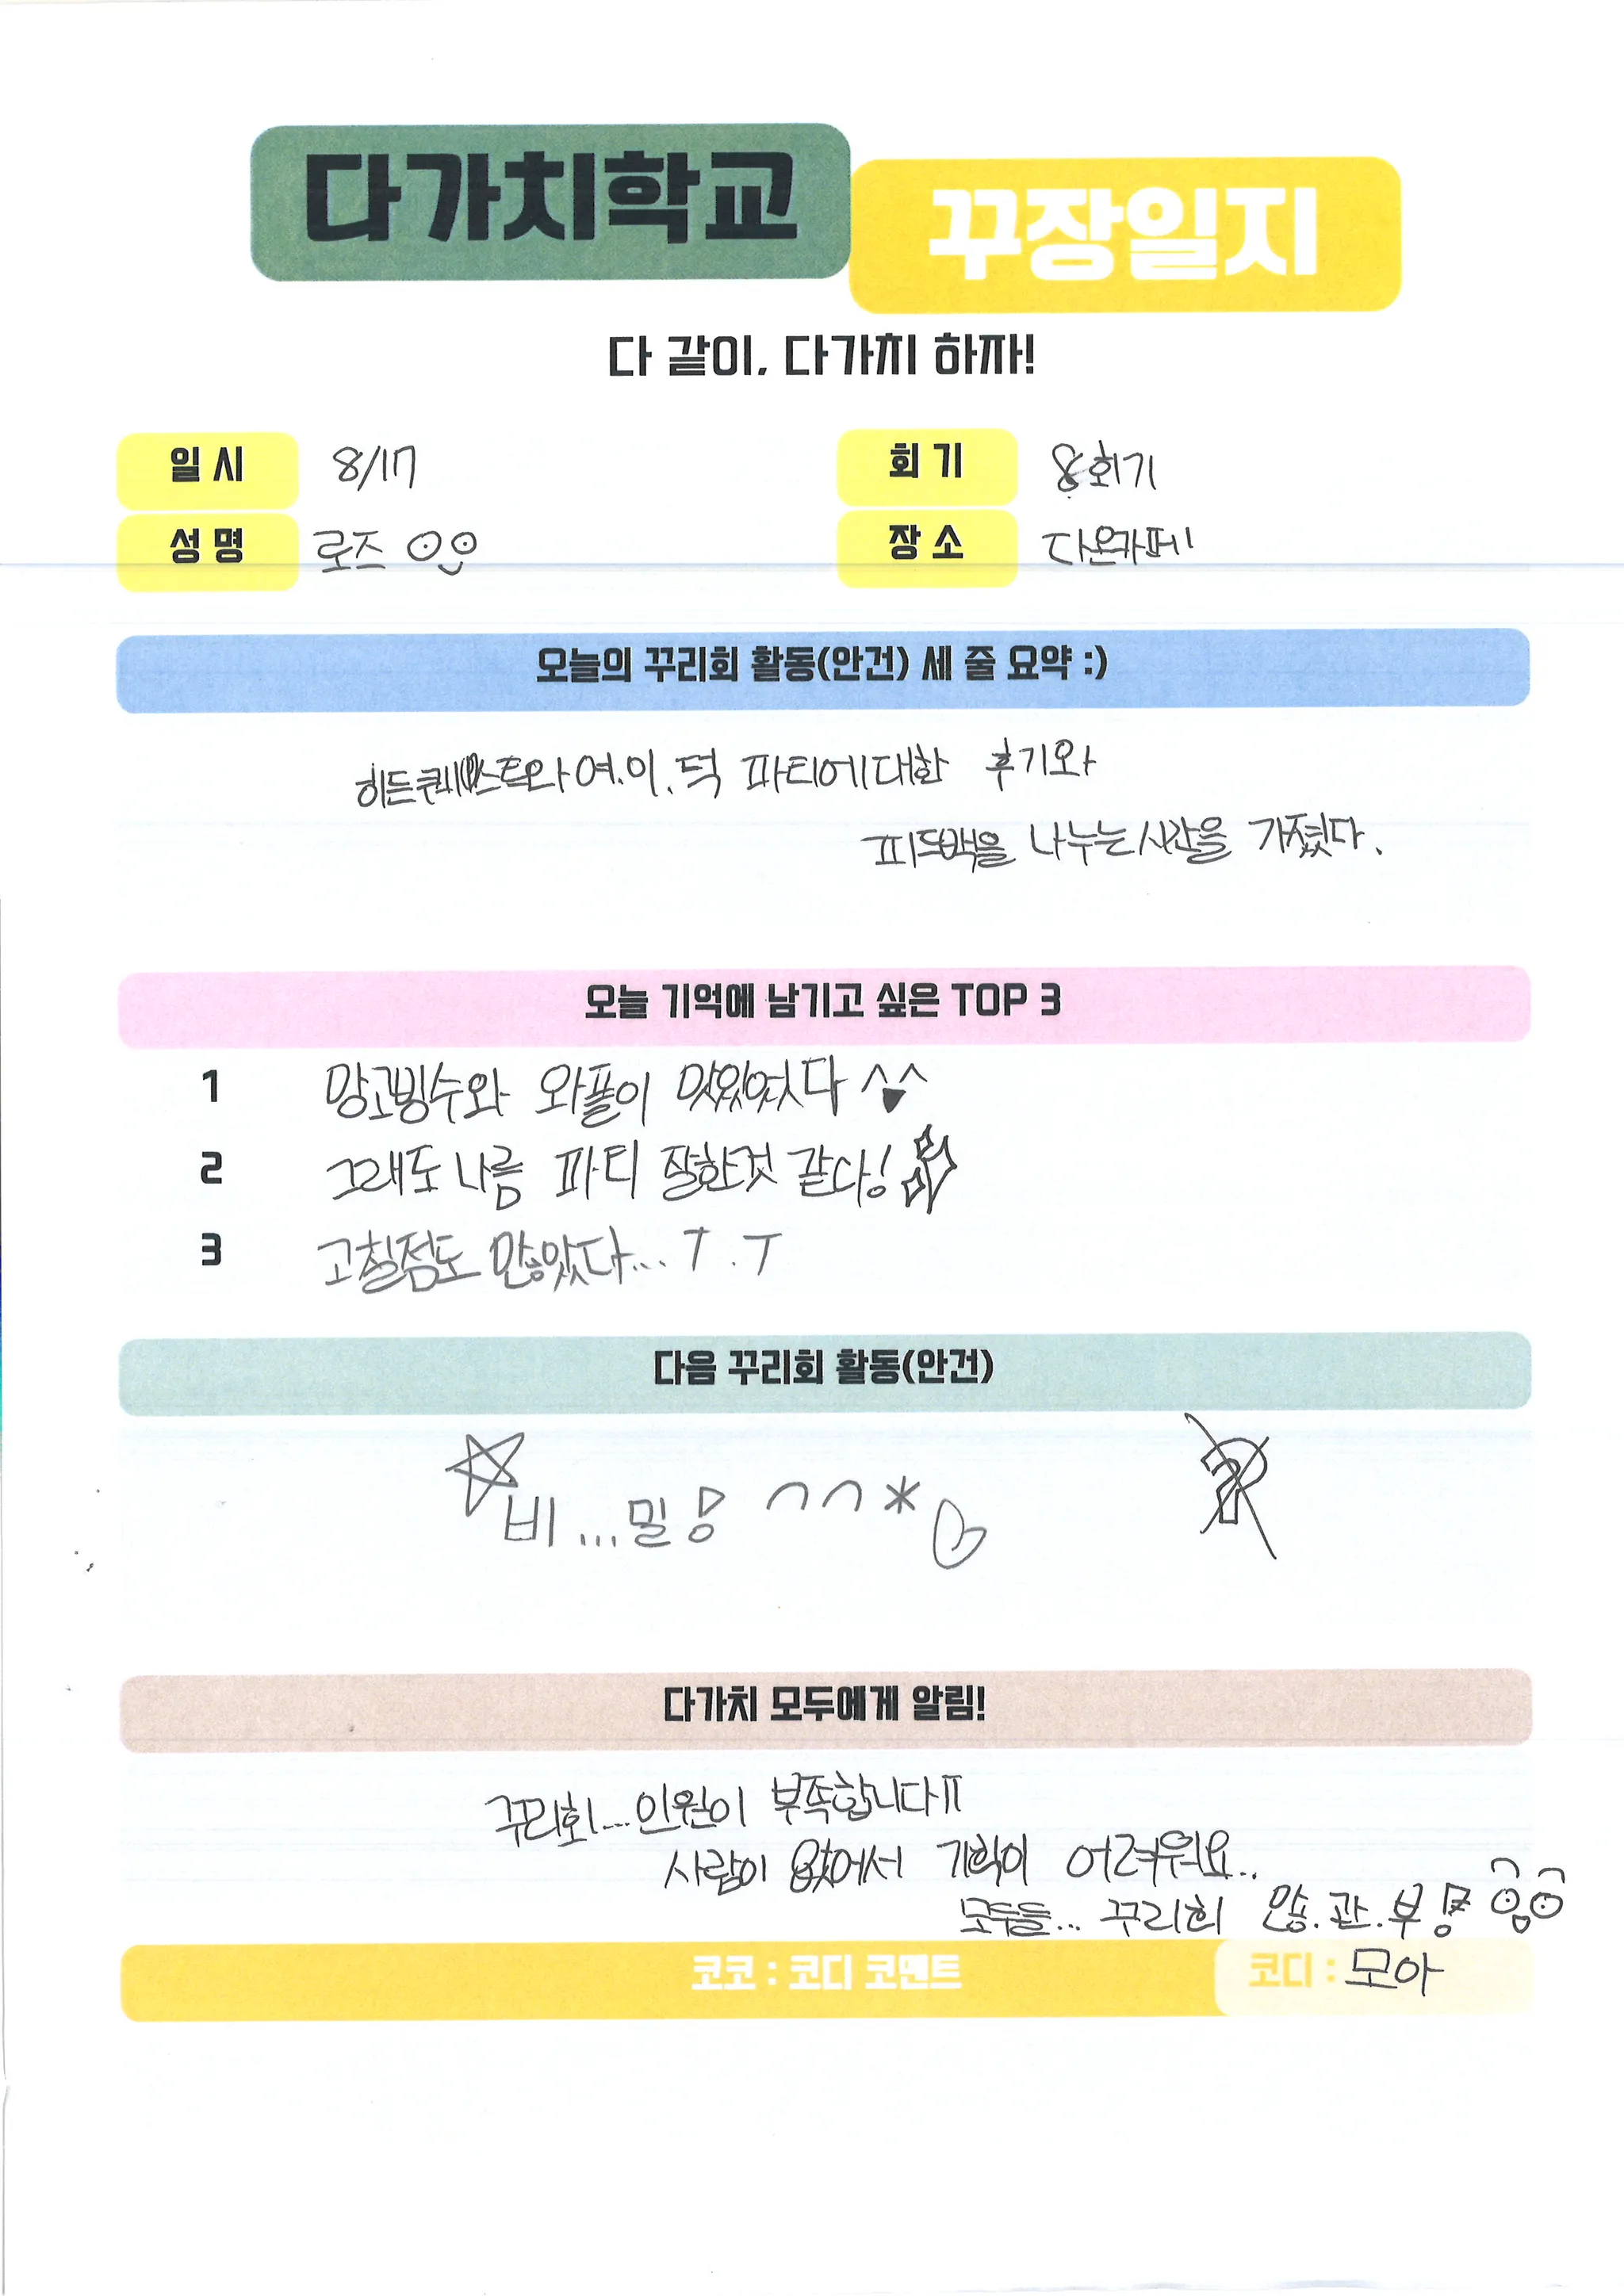 다가치학교
꾸장일지
다 같이, 다가치 하자!
일 시 8/17 회 기 8회기
성 명 로즈 장 소 다온카페
오늘의 꾸리회 활동(안건) 세 줄 요약 :)
히든퀘스트와 여.이.덕 파티에대한 후기와
피드백을 나누는시간을 가졌다.
오늘 기억에 남기고 싶은 TOP 3
1 망고빙수와 와플이 맛있었다 ^^
2 그래도 나름 파티 잘한것 같다!
3 고칠점도 많았다... T.T
다음 꾸리회 활동(안건)
비...밀! ^^*
다가치 모두에게 알림!
꾸리회... 인원이 부족합니다ㅠ
사람이 없어서 기획이 어려워요..
모두들... 꾸리회 많.관.부!
코코 : 코디 코멘트 코디 : 모아